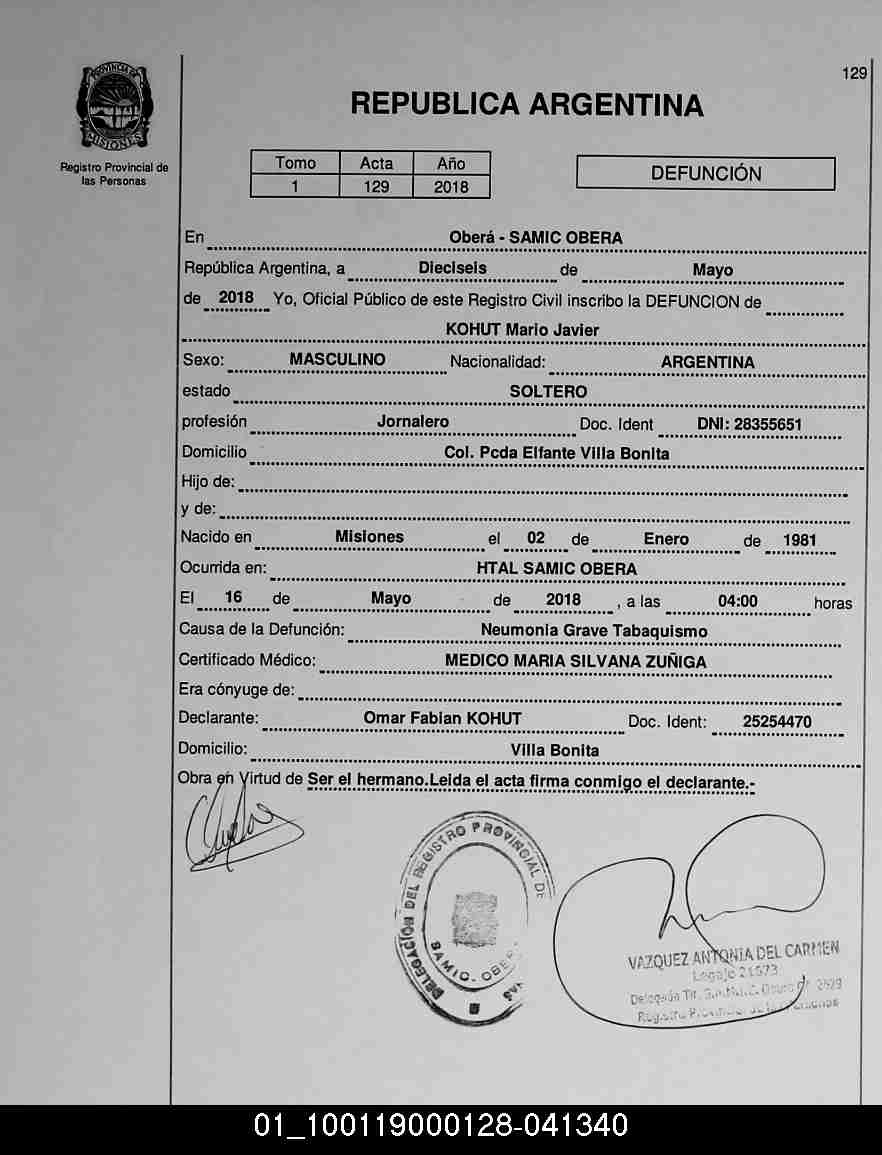 129
PROVINCIA DE
MISIONES
Registro Provincial de
las Personas
REPUBLICA ARGENTINA
Tomo Acta Año
1 129 2018
DEFUNCIÓN
En Oberá - SAMIC OBERA
República Argentina, a Dieciseis de Mayo
de 2018 Yo, Oficial Público de este Registro Civil inscribo la DEFUNCION de
KOHUT Mario Javier
Sexo: MASCULINO Nacionalidad: ARGENTINA
estado SOLTERO
profesión Jornalero Doc. Ident DNI: 28355651
Domicilio Col. Pcda Elfante Villa Bonita
Hijo de:
y de:
Nacido en Misiones el 02 de Enero de 1981
Ocurrida en: HTAL SAMIC OBERA
El 16 de Mayo de 2018 , a las 04:00 horas
Causa de la Defunción: Neumonia Grave Tabaquismo
Certificado Médico: MEDICO MARIA SILVANA ZUÑIGA
Era cónyuge de:
Declarante: Omar Fabian KOHUT Doc. Ident: 25254470
Domicilio: Villa Bonita
Obra en Virtud de Ser el hermano.Leida el acta firma conmigo el declarante.-
DELEGACIÓN DEL REGISTRO PROVINCIAL DE
SAMIC. OBERA
VAZQUEZ ANTONIA DEL CARMEN
Legajo 21573
Registro Provincial de las Personas
01_100119000128-041340